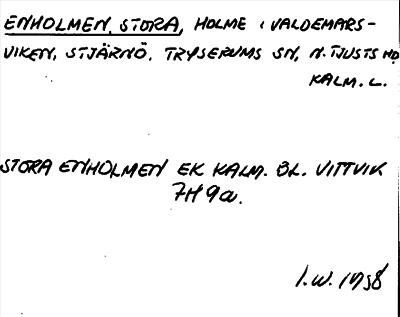 ENHOLMEN, STORA, HOLME I VALDEMARS-
VIKEN, STJÄRNÖ, TRYSERUMS SN, N. TJUSTS HD
KALM. L.
STORA ENHOLMEN EK KALM. BL. VITTVIK
7H 9a.
I.W. 1958